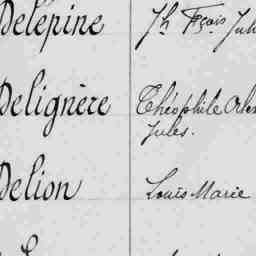 Delépine Jh Fçois Jul
Delignère Théophile
Jules.
Delion Louis Marie